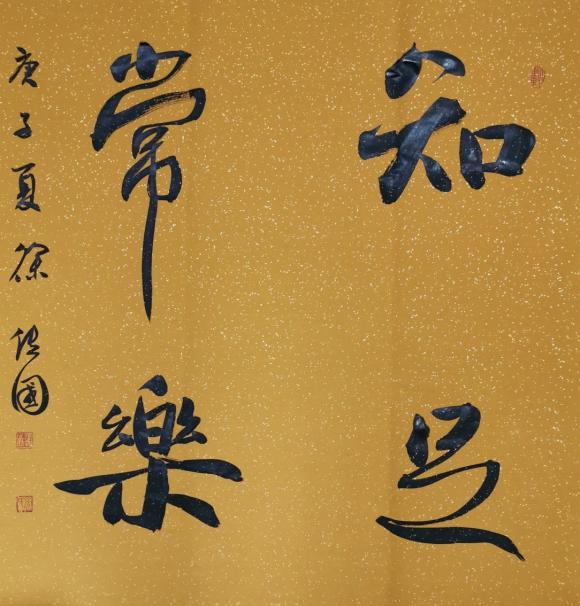 知足
常樂
庚子夏徐國